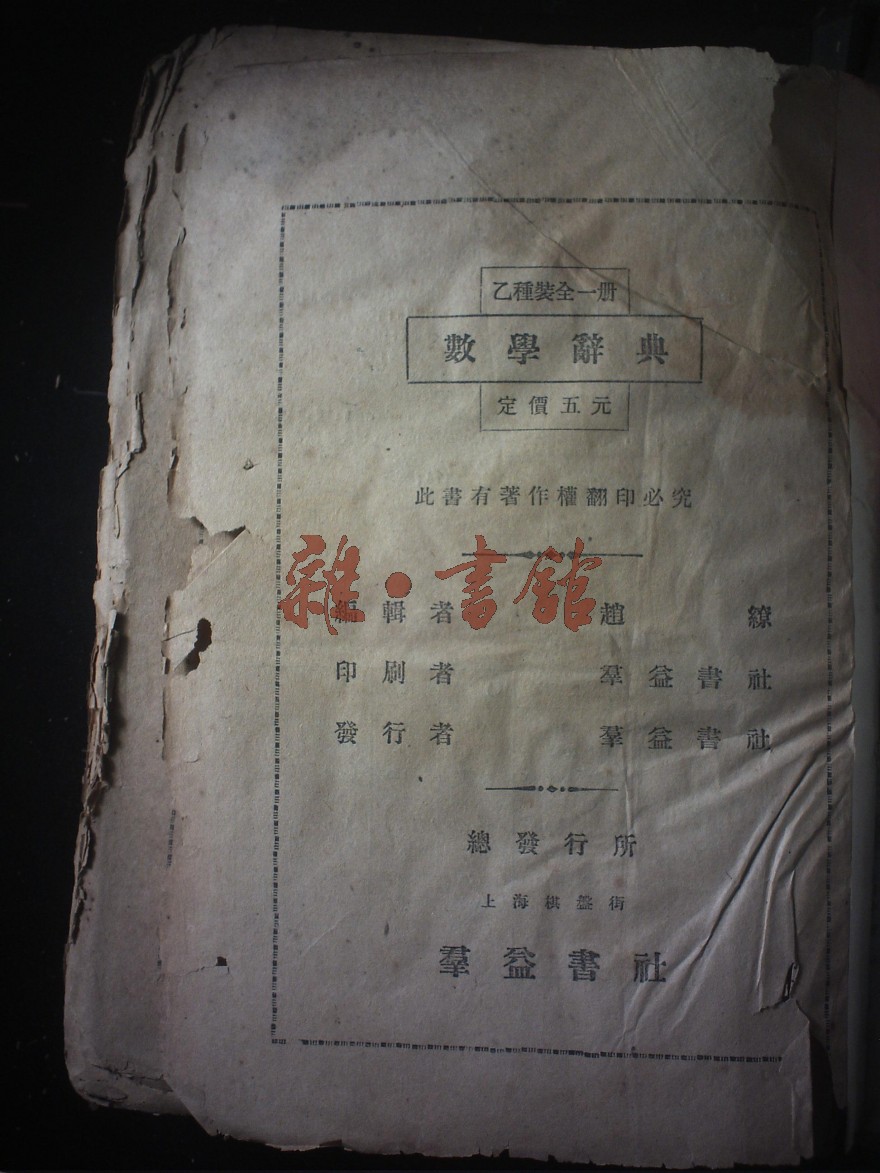 乙種裝全一册
數學辭典
定價五元
此書有著作權翻印必究
雜·書館
編輯者 趙繚
印刷者 羣益書社
發行者 羣益書社
總發行所
上海棋盤街
羣益書社